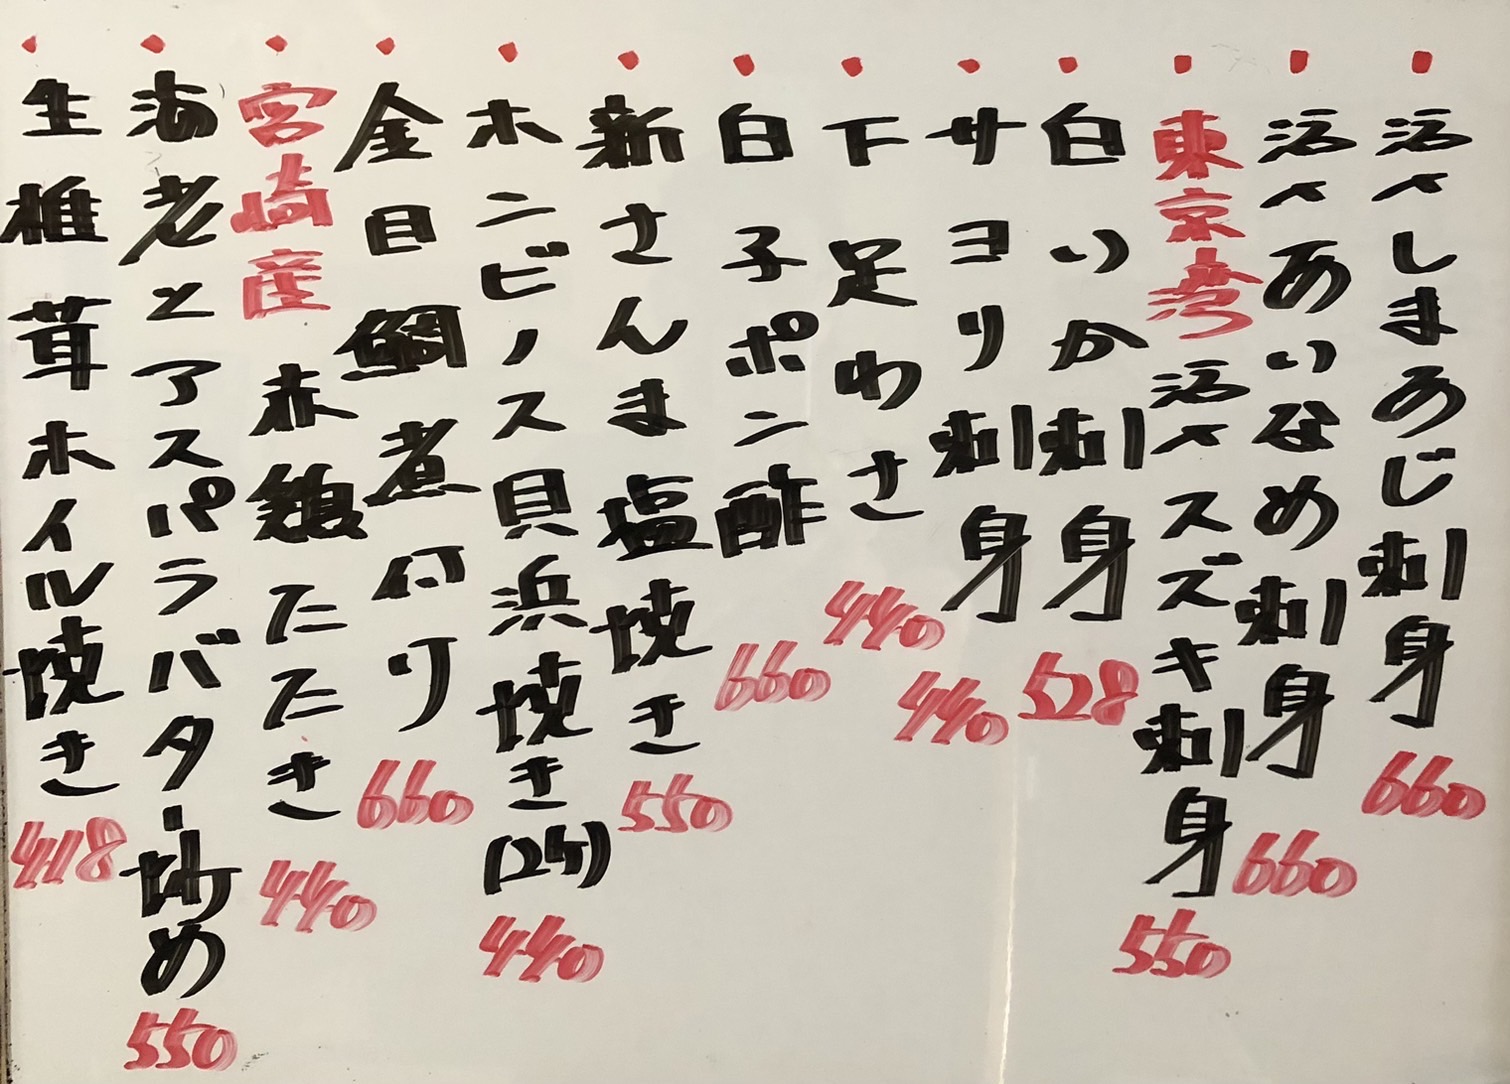 活〆しまあじ刺身 660
活〆あいなめ刺身 660
東京湾活〆スズキ刺身 550
白いか刺身 528
サヨリ刺身 440
下足わさ 440
白子ポン酢 660
新さんま塩焼き 550
ホンビノス貝浜焼き(2ケ) 440
金目鯛煮付り 660
宮崎産赤鶏たたき 440
海老とアスパラバター炒め 550
生椎茸ホイル焼き 418